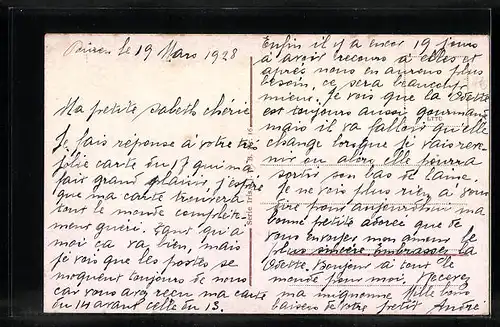 le 19 Mars 1928
Ma petite sabeth chérie
Je fais réponse à votre très
jolie carte du 17 qui m'a
fait grand plaisir, j'espère
que ma carte trouvera
tout le monde complète
ment guéri. Quant à
moi ca va bien, mais
je vois que les postes se
moquent toujours de nous
car vous avez reçu ma carte
du 14 avant celle du 13.
Enfin il y a encor 19 jours
à avoir recours à elles et
après nous en aurons plus
besoin, ce sera beaucoup
mieux. Je vois que la Odette
est toujours aussi gourmande
mais il va falloir qu'elle
change lorsque je vais reve
nir ou alors elle pourra
sortir son bas de laine.
Je ne vois plus rien à vous
dire pour aujourd'hui ma
bonne petite adorée que de
vous envoyer mon amour le
plus sincère, embrasser la
Odette. Bonjour à tout le
monde pour moi. Recevez
ma mignonne Mille bons
baisers de votre petit André